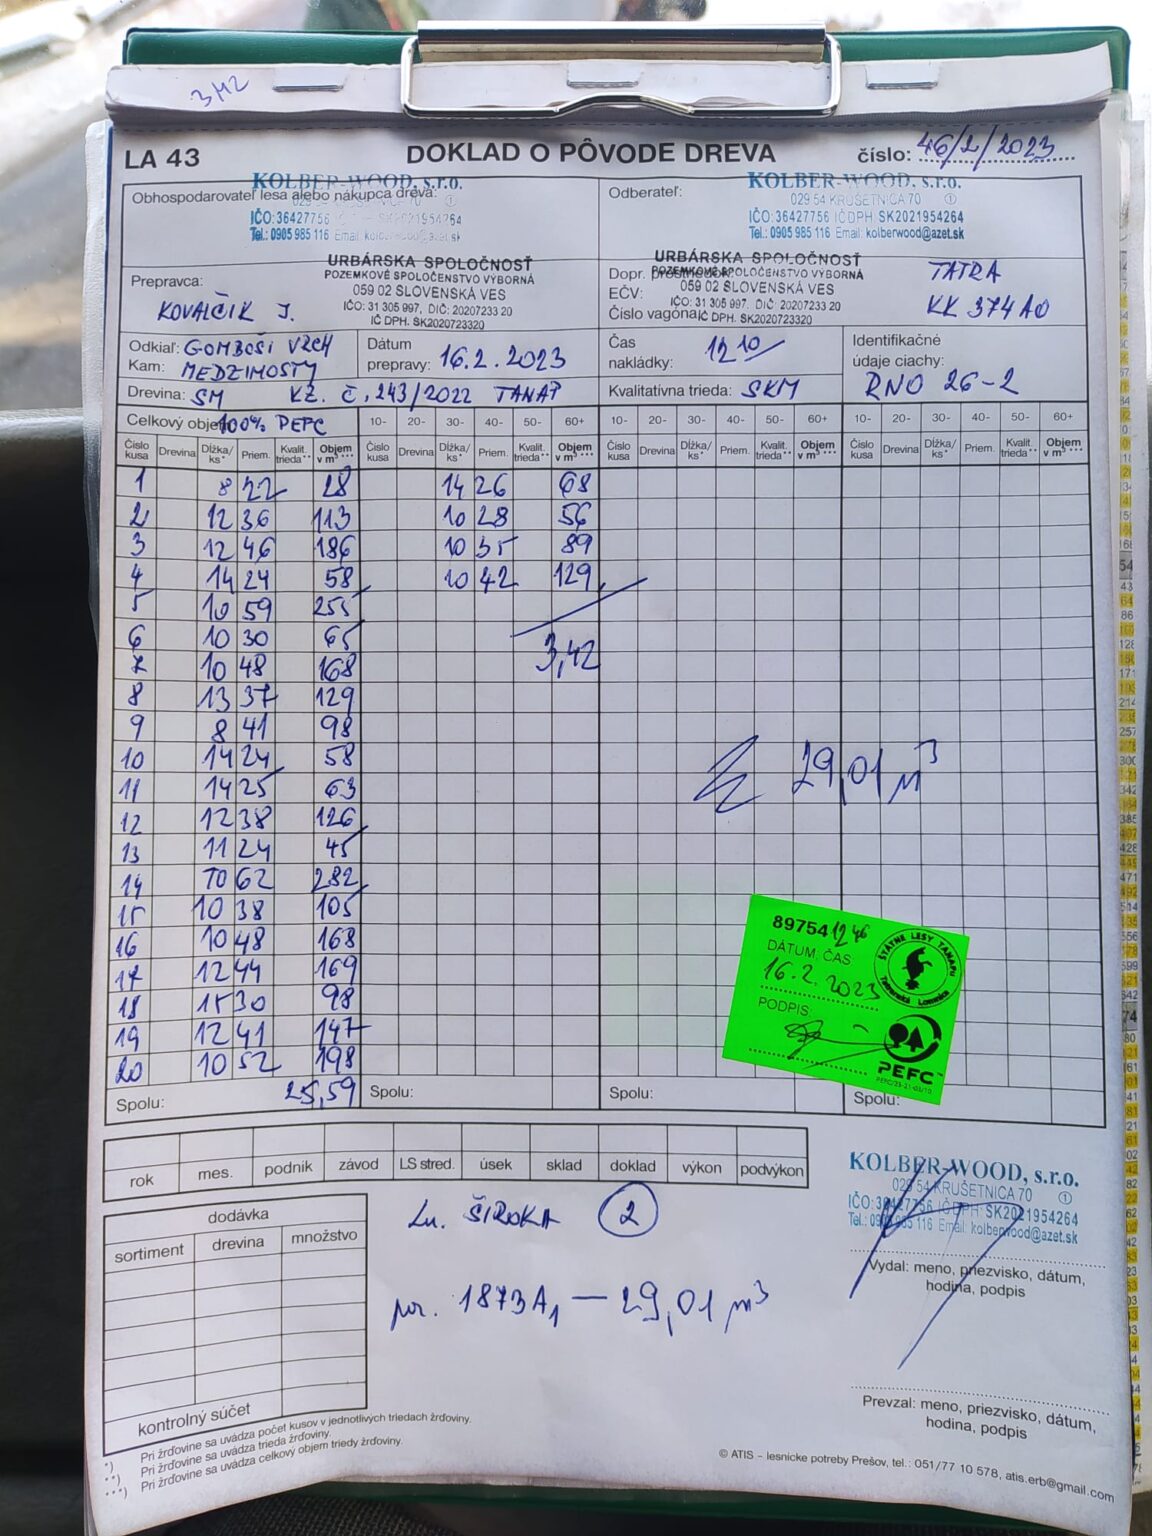 3M2
LA 43 DOKLAD O PÔVODE DREVA číslo: 46/2/2023
Obhospodarovateľ lesa alebo nákupca dreva:
KOLBER-WOOD, s.r.o.
IČO: 36427756 IČ DPH: SK2021954264
Tel.: 0905 985 116 Email: kolberwood@azet.sk
Odberateľ:
KOLBER-WOOD, s.r.o.
029 54 KRUŠETNICA 70 ①
IČO: 36427756 IČ DPH: SK2021954264
Tel.: 0905 985 116 Email: kolberwood@azet.sk
Prepravca:
KOVALČIK J.
URBÁRSKA SPOLOČNOSŤ
POZEMKOVÉ SPOLOČENSTVO VÝBORNÁ
059 02 SLOVENSKÁ VES
IČO: 31 305 997, DIČ: 20207233 20
IČ DPH. SK2020723320
Dopr. prostriedok:
EČV:
Číslo vagóna:
URBÁRSKA SPOLOČNOSŤ
POZEMKOVÉ SPOLOČENSTVO VÝBORNÁ
059 02 SLOVENSKÁ VES
IČO: 31 305 997, DIČ: 20207233 20
IČ DPH. SK2020723320
TATRA
KK 374AO
Odkiaľ: GOMBOŠI VRCH
Kam: MEDZIMOSTY
Dátum prepravy: 16.2.2023
Čas nakládky: 12 10
Identifikačné údaje ciachy:
RNO 26-2
Drevina: SM KZ. Č. 243/2022 TANAP
Kvalitatívna trieda: SKM
Celkový objem 100% PEFC
10- 20- 30- 40- 50- 60+ 10- 20- 30- 40- 50- 60+ 10- 20- 30- 40- 50- 60+
Číslo kusa Drevina Dĺžka/ ks* Priem. Kvalit. trieda** Objem v m³*** Číslo kusa Drevina Dĺžka/ ks* Priem. Kvalit. trieda** Objem v m³*** Číslo kusa Drevina Dĺžka/ ks* Priem. Kvalit. trieda** Objem v m³*** Číslo kusa Drevina Dĺžka/ ks* Priem. Kvalit. trieda** Objem v m³***
1 8 22 28 14 26 68
2 12 36 113 10 28 56
3 12 46 186 10 35 89
4 14 24 58 10 42 129
5 10 59 255
6 10 30 65 3,42
7 10 48 168
8 13 37 129
9 8 41 98
10 14 24 58 29,01 m³
11 14 25 63
12 12 38 126
13 11 24 45
14 10 62 282
15 10 38 105
16 10 48 168
17 12 44 169
18 15 30 98
19 12 41 147
20 10 52 198
Spolu: 25,59 Spolu: Spolu: Spolu:
89754 12 46
DÁTUM, ČAS
16.2.2023
PODPIS
ŠTÁTNE LESY TANAPU
Tatranská Lomnica
PEFC
rok mes. podnik závod LS stred. úsek sklad doklad výkon podvýkon
dodávka
sortiment drevina množstvo
kontrolný súčet
Lu. ŠIROKA 2
por. 1873A1 — 29,01 m³
KOLBER-WOOD, s.r.o.
029 54 KRUŠETNICA 70 ①
IČO: 36427756 IČ DPH: SK2021954264
Tel.: 0905 985 116 Email: kolberwood@azet.sk
Vydal: meno, priezvisko, dátum,
hodina, podpis
Prevzal: meno, priezvisko, dátum,
hodina, podpis
*) Pri žrďovine sa uvádza počet kusov v jednotlivých triedach žrďoviny.
**) Pri žrďovine sa uvádza trieda žrďoviny.
***) Pri žrďovine sa uvádza celkový objem triedy žrďoviny.
© ATIS – lesnícke potreby Prešov, tel.: 051/77 10 578, atis.erb@gmail.com